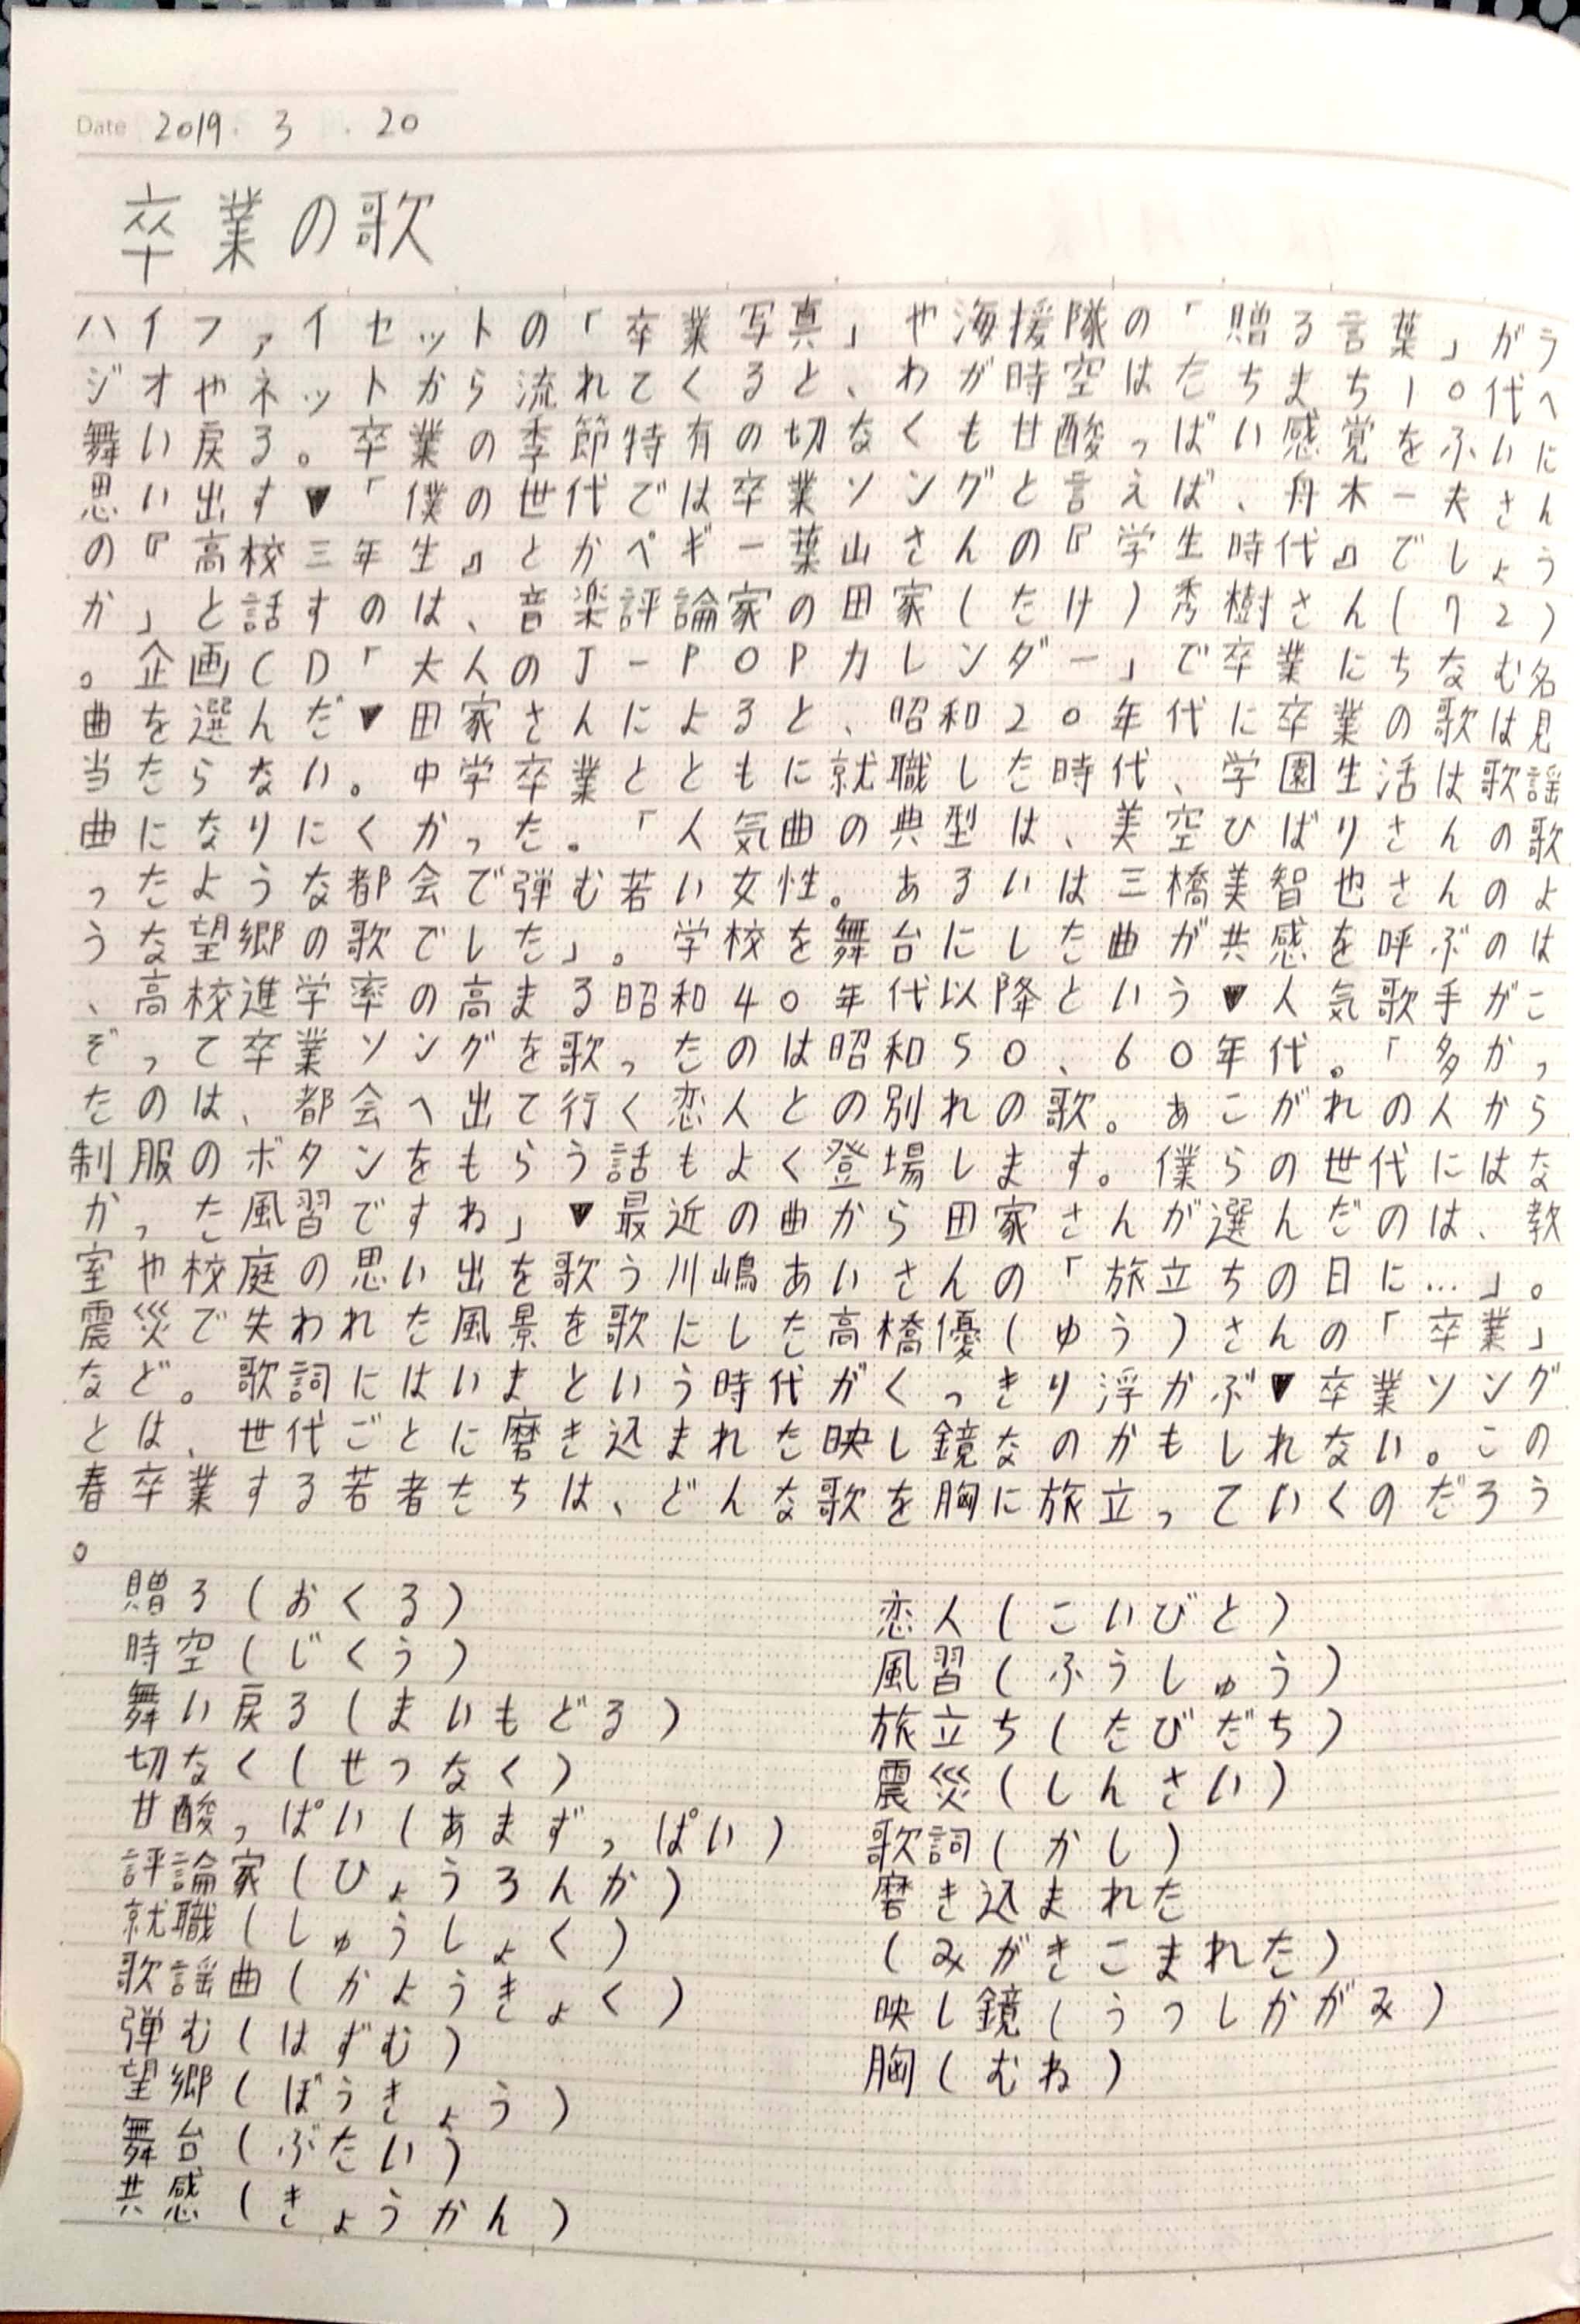 Date 2019. 3 . 20
卒業の歌
ハイファイセットの「卒業写真」や海援隊の「贈る言葉」がラ
ジオやネットから流れてくると、わが時空はたちまち10代へ
舞い戻る。卒業の季節特有の切なくも甘酸っぱい感覚をふいに
思い出す▼「僕の世代では卒業ソングと言えば、舟木一夫さん
の『高校三年生』とかペギー葉山さんの『学生時代』でしょう
か」と話すのは、音楽評論家の田家(たけ)秀樹さん(72)
。企画CD「大人のJ-POPカレンダー」で卒業にちなむ名
曲を選んだ▼田家さんによると、昭和20年代に卒業の歌は見
当たらない。中学卒業とともに就職した時代、学園生活は歌謡
曲になりにくかった。「人気曲の典型は、美空ひばりさんの歌
ったような都会で弾む若い女性。あるいは三橋美智也さんのよ
うな望郷の歌でした」。学校を舞台にした曲が共感を呼ぶのは
、高校進学率の高まる昭和40年代以降という▼人気歌手がこ
ぞって卒業ソングを歌ったのは昭和50、60年代。「多かっ
たのは、都会へ出て行く恋人との別れの歌。あこがれの人から
制服のボタンをもらう話もよく登場します。僕らの世代にはな
かった風習ですね」▼最近の曲から田家さんが選んだのは、教
室や校庭の思い出を歌う川嶋あいさんの「旅立ちの日に…」。
震災で失われた風景を歌にした高橋優(ゆう)さんの「卒業」
など。歌詞にはいまという時代がくっきり浮かぶ▼卒業ソング
とは、世代ごとに磨き込まれた映し鏡なのかもしれない。この
春卒業する若者たちは、どんな歌を胸に旅立っていくのだろう
。
贈る(おくる)
時空(じくう)
舞い戻る(まいもどる)
切なく(せつなく)
甘酸っぱい(あまずっぱい)
評論家(ひょうろんか)
就職(しゅうしょく)
歌謡曲(かようきょく)
弾む(はずむ)
望郷(ぼうきょう)
舞台(ぶたい)
共感(きょうかん)
恋人(こいびと)
風習(ふうしゅう)
旅立ち(たびだち)
震災(しんさい)
歌詞(かし)
磨き込まれた
(みがきこまれた)
映し鏡(うつしかがみ)
胸(むね)